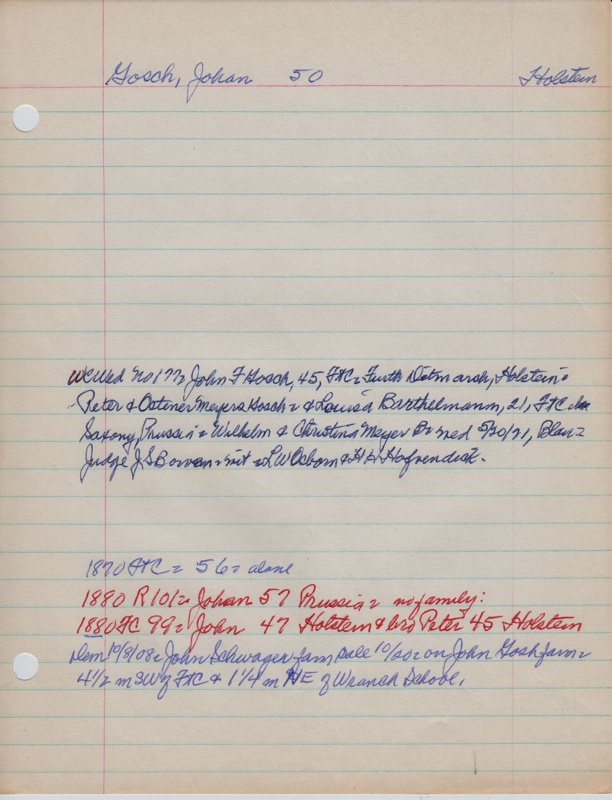 Gosch, Johan 50 Holstein
WCWed No 177= John F Gosch, 45, FtC= Furth Ditmarsh, Holstein=
Peter & Meyers Gosch= & Louisa Barthelmann, 21, FtC
Saxony, Prussia= Wilhelm & Christina Meyer B= wed 5/30/71, Blair=
Judge J S Bowen= wit= L W Osborn & H H Hofrendick.
1870 FtC= 56= alone
1880 R 101= Johan 57 Prussia= no family:
1880 FC 99= John 47 Holstein & bro Peter 45 Holstein
Dem 10/8/08= John Schwager farm sale 10/20= on John Gosh farm=
4 1/2 m SW of FtC & 1 1/4 m NE of Wranch School.